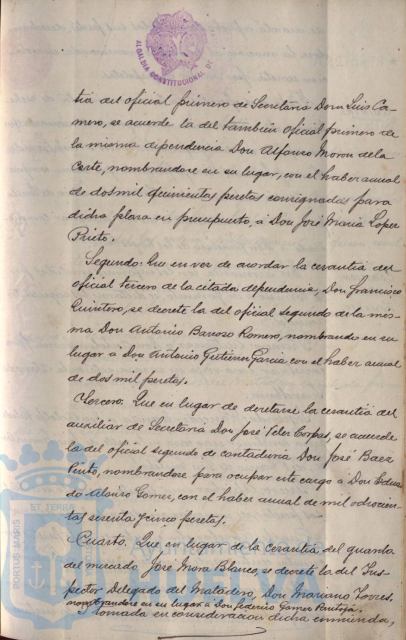 ALCALDIA CONSTITUCIONAL DE
tia del oficial primero de Secretaria Don Luis Ca-
mero, se acuerde la del tambien oficial primero de
la misma dependencia Don Alfonso Moron de la
Corte, nombrandose en su lugar, con el haber anual
de dos mil quinientas pesetas consignadas para
dicha plaza en presupuesto, á Don José Maria Lopez
Prieto.
Segundo: Que en vez de acordar la cesantia del
oficial tercero de la citada dependencia, Don Francisco
Quintero, se decrete la del oficial segundo de la mis-
ma Don Antonio Barroso Romero, nombrando en su
lugar á Don Antonio Gutierrez Garcia con el haber anual
de dos mil pesetas.
Tercero: Que en lugar de decretarse la cesantia del
auxiliar de Secretaria Don José Corpas, se acuerde
la del oficial segundo de contaduria Don José Baez
Pinto, nombrandose para ocupar este cargo á Don Eduar
do Alonso Gomez, con el haber anual de mil ochocien-
tas sesenta y cinco pesetas.
Cuarto. Que en lugar de la cesantia, del guarda
del mercado José Mora Blanco, se decrete la del Ins-
pector Delegado del Matadero, Don Mariano Torres,
nombrandose en su lugar á Don Federico Gomez Pantoja.
Tomada en consideracion dicha enmienda,
PORTUS MARIS
ET TERRÆ
Ayuntamiento de
Huelva